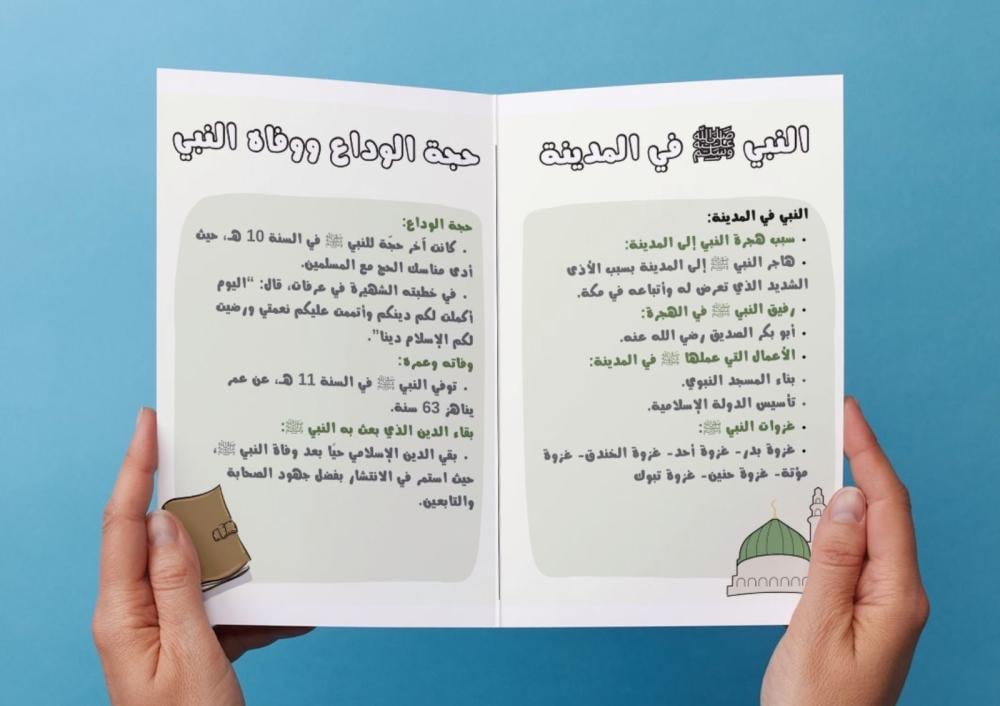 النبي ﷺ في المدينة
النبي في المدينة:
• سبب هجرة النبي إلى المدينة:
• هاجر النبي ﷺ إلى المدينة بسبب الأذى
الشديد الذي تعرض له وأتباعه في مكة.
• رفيق النبي ﷺ في الهجرة:
• أبو بكر الصديق رضي الله عنه.
• الأعمال التي عملها ﷺ في المدينة:
• بناء المسجد النبوي.
• تأسيس الدولة الإسلامية.
• غزوات النبي ﷺ:
• غزوة بدر- غزوة أحد- غزوة الخندق- غزوة
مؤتة- غزوة حنين- غزوة تبوك
حجة الوداع ووفاة النبي
حجة الوداع:
• كانت آخر حجّة للنبي ﷺ في السنة 10 هـ، حيث
أدى مناسك الحج مع المسلمين.
• في خطبته الشهيرة في عرفات، قال: "اليوم
أكملت لكم دينكم وأتممت عليكم نعمتي ورضيت
لكم الإسلام دينا".
وفاته وعمره:
• توفي النبي ﷺ في السنة 11 هـ، عن عمر
يناهز 63 سنة.
بقاء الدين الذي بعث به النبي ﷺ:
• بقي الدين الإسلامي حيًا بعد وفاة النبي ﷺ،
حيث استمر في الانتشار بفضل جهود الصحابة
والتابعين.